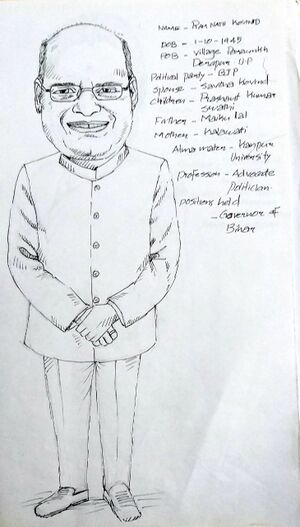 NAME - RAM NATH KOVIND
DOB - 1-10-1945
POB - Village Paraunkh
Derapur U.P
Political party - BJP
Spouse - Savitha Kovind
Children - Prashant Kumar
Swathi
Father - Maiku lal
Mother - Kalawati
Alma mater - Kanpur
University
Profession - Advocate
Politician
positions held
- Governor of
Bihar